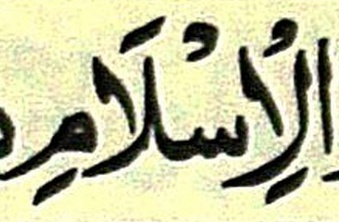 الْإِسْلَامِ